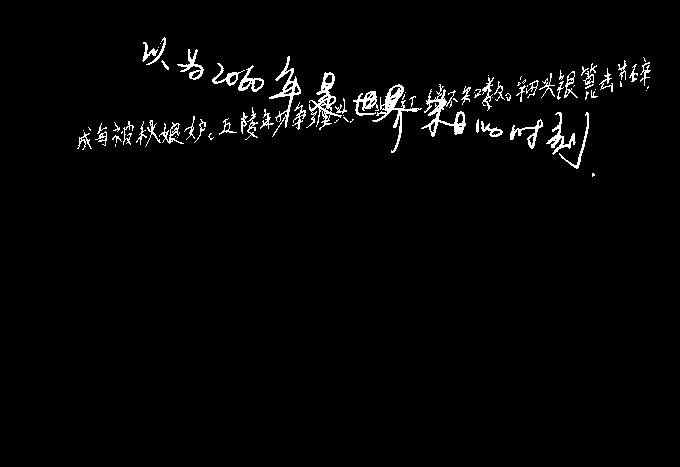 以为2060年是世界末日的时刻.
成每被秋娘妒。五陵年少争缠头,一曲红绡不知数。钿头银篦击节碎,